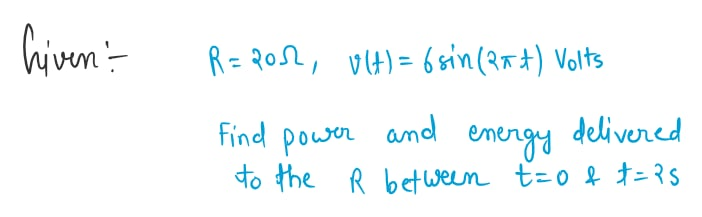 Given:- R = 20Ω, v(t) = 6 sin(2πt) Volts
Find power and energy delivered
to the R between t=0 & t=2s